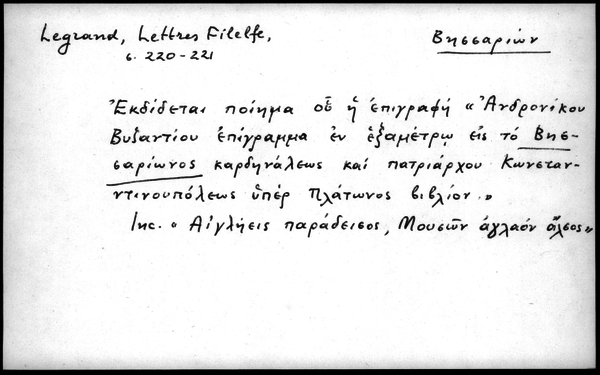 Legrand, Lettres Filelfe,
σ. 220-221
Βησσαρίων
Ἐκδίδεται ποίημα οὗ ἡ ἐπιγραφή «Ἀνδρονίκου
Βυζαντίου ἐπίγραμμα ἐν ἑξαμέτρῳ εἰς τό Βησ-
σαρίωνος καρδηνάλεως καί πατριάρχου Κωνσταν-
ντινουπόλεως ὑπέρ Πλάτωνος βιβλίον.»
Inc. «Αἰγλήεις παράδεισος, Μουσῶν ἀγλαόν ἄλσος»